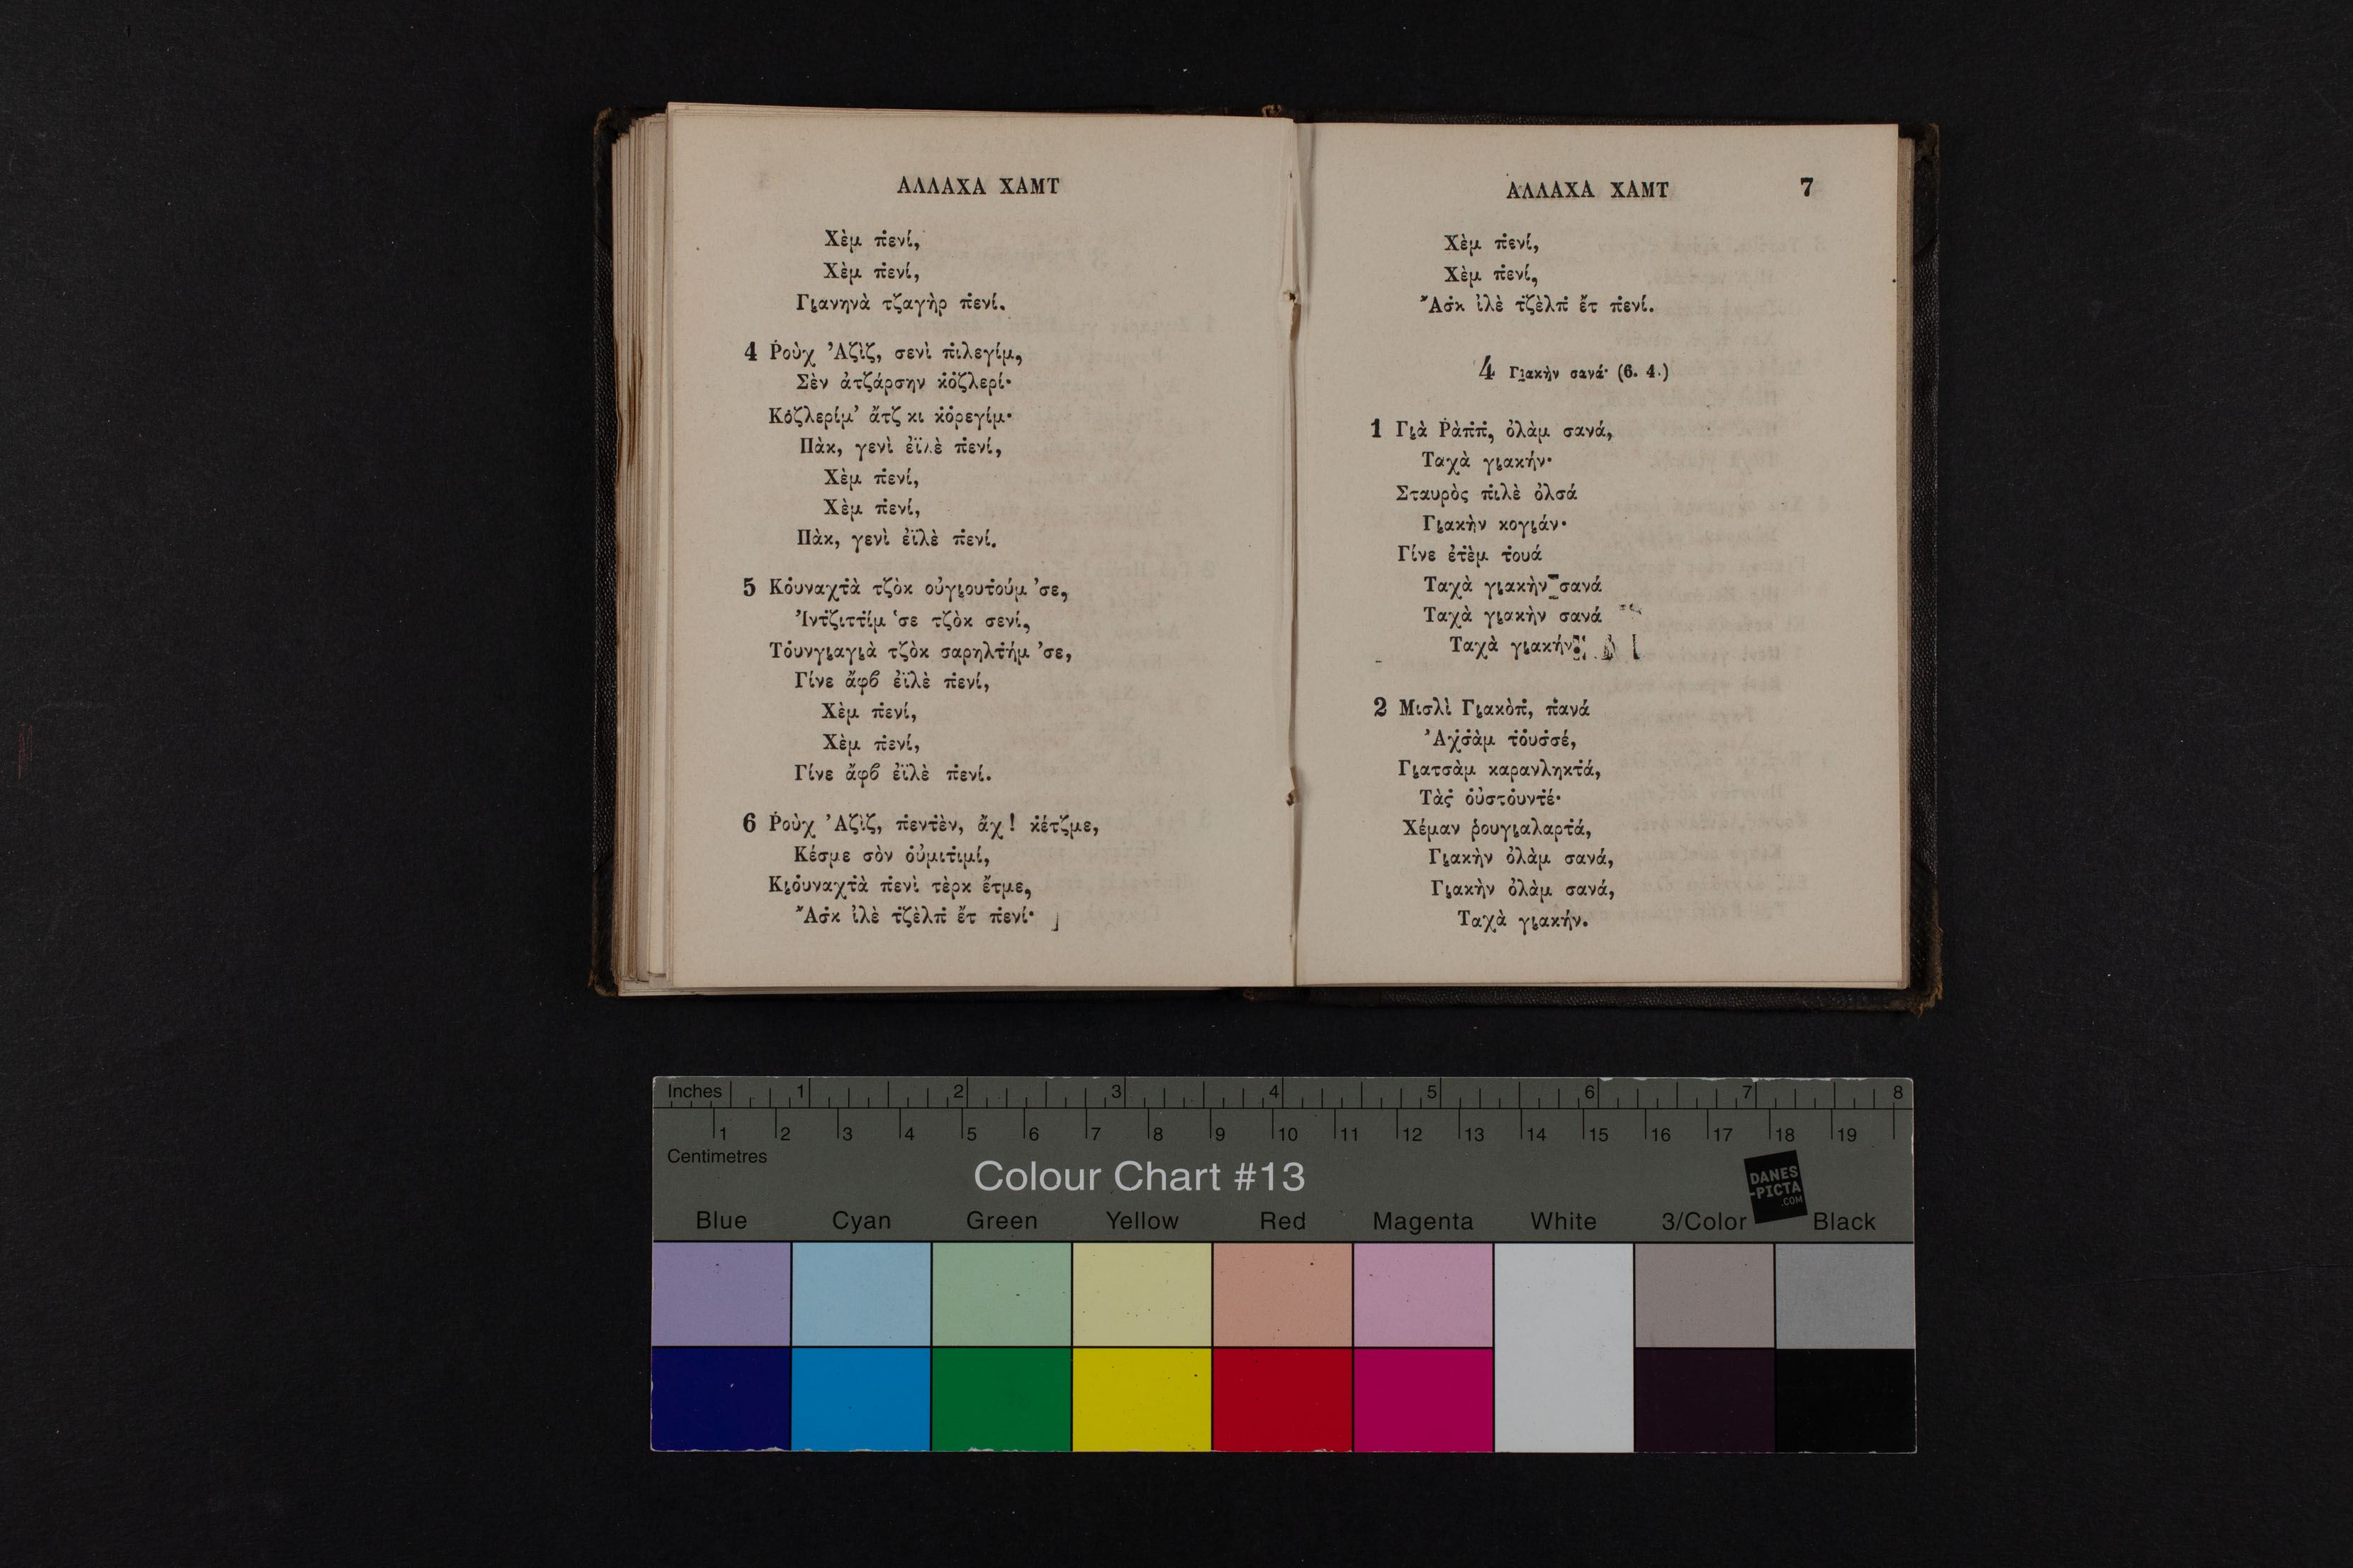 ΑΛΛΑΧΑ ΧΑΜΤ
Χὲμ π̇ενί,
Χὲμ π̇ενί,
Γι̯ανηνὰ τζαγὴρ π̇ενί.
4 Ῥοὺχ Ἀζὶζ, σενὶ π̇ιλεγίμ,
Σὲν ἀτζάρσην κ̇ὀζλερί·
Κ̇ὀζλερίμ’ ἄτζ κι κ̇ὀρεγίμ·
Πὰκ, γενὶ ἐϊλὲ π̇ενί,
Χὲμ π̇ενί,
Χὲμ π̇ενί,
Πὰκ, γενὶ ἐϊλὲ π̇ενί.
5 Κ̇ὀυναχτ̇ὰ τζὸκ οὐγι̯ουτ̇ούμ ’σε,
Ἰντ̇ζιττ̇ίμ ’σε τζὸκ σενί,
Τ̇ὀυνγι̯αγι̯ὰ τζὸκ σαρηλτ̇ήμ ’σε,
Γίνε ἄφϐ ἐϊλὲ π̇ενί,
Χὲμ π̇ενί,
Χὲμ π̇ενί,
Γίνε ἄφϐ ἐϊλὲ π̇ενί.
6 Ῥοὺχ Ἀζὶζ, π̇εντ̇ὲν, ἄχ! κ̇έτζμε,
Κέσμε σὸν ὀὐμιτ̇ιμί,
Κι̯ὀυναχτ̇ὰ π̇ενὶ τὲρκ ἔτμε,
Ἄσ̇κ ἰλὲ τ̇ζὲλπ̇ ἔτ π̇ενί·
ΑΛΛΑΧΑ ΧΑΜΤ 7
Χὲμ π̇ενί,
Χὲμ π̇ενί,
Ἄσ̇κ ἰλὲ τ̇ζὲλπ̇ ἔτ π̇ενί.
4 Γι̯ακὴν σανά· (6. 4.)
1 Γι̯ὰ Ῥὰπ̇π̇, ὀλὰμ σανά,
Ταχὰ γι̯ακήν·
Σταυρὸς π̇ιλὲ ὀλσά
Γι̯ακὴν κογι̯άν·
Γίνε ἐτ̇ὲμ τ̇ουά
Ταχὰ γι̯ακὴν σανά
Ταχὰ γι̯ακὴν σανά
Ταχὰ γι̯ακήν
2 Μισλὶ Γι̯ακὸπ̇, π̇ανά
Ἀχσ̇ὰμ τ̇ὀυσσέ,
Γι̯ατσὰμ καρανληκτ̇ά,
Τὰς̇ ὀὐστ̇ὀυντ̇έ·
Χέμαν ῥουγι̯αλαρτ̇ά,
Γι̯ακὴν ὀλὰμ σανά,
Γι̯ακὴν ὀλὰμ σανά,
Ταχὰ γι̯ακήν.
Inches 1 2 3 4 5 6 7 8
1 2 3 4 5 6 7 8 9 10 11 12 13 14 15 16 17 18 19
Centimetres
Colour Chart #13
DANES
-PICTA
.COM
Blue Cyan Green Yellow Red Magenta White 3/Color Black